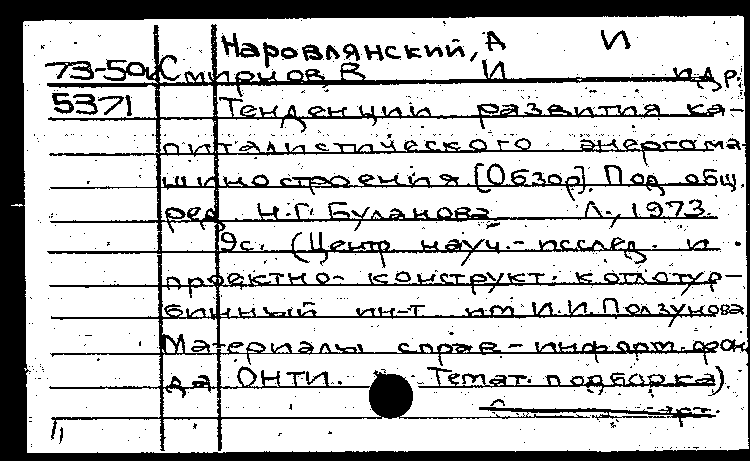 Наровлянский, А И
73-50к Смирнов В И и др.
5371 Тенденции развития ка-
питалистического энергома-
шиностроения. [Обзор]. Под общ.
ред. Н.Г. Буланова. Л., 1973.
9с. (Центр науч.-исслед. и
проектно-конструкт. котлотур-
бинный ин-т им И.И. Ползунова
Материалы справ-информ. фон
да ОНТИ. Темат. подборка)